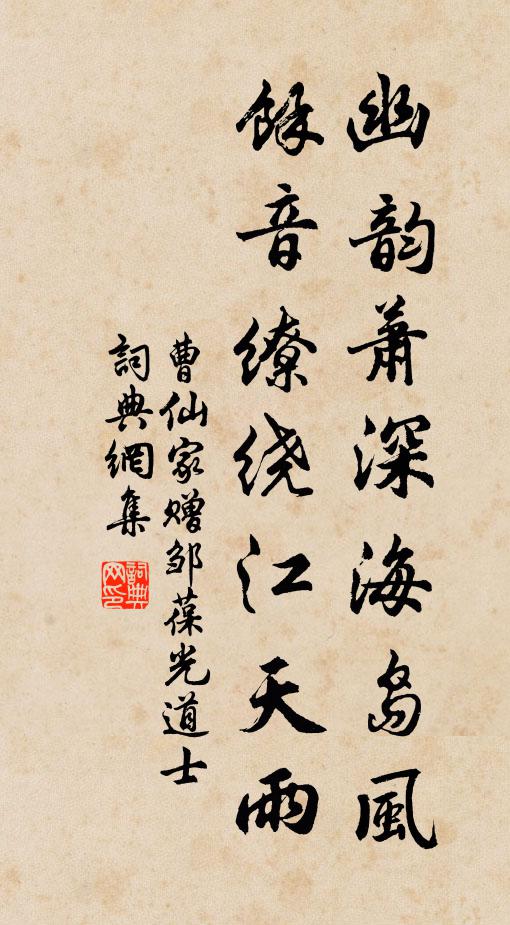 幽韵萧深海岛風
餘音缭绕江天雨
曹仙家赠邹葆光道士
詞典網集
詞典网印